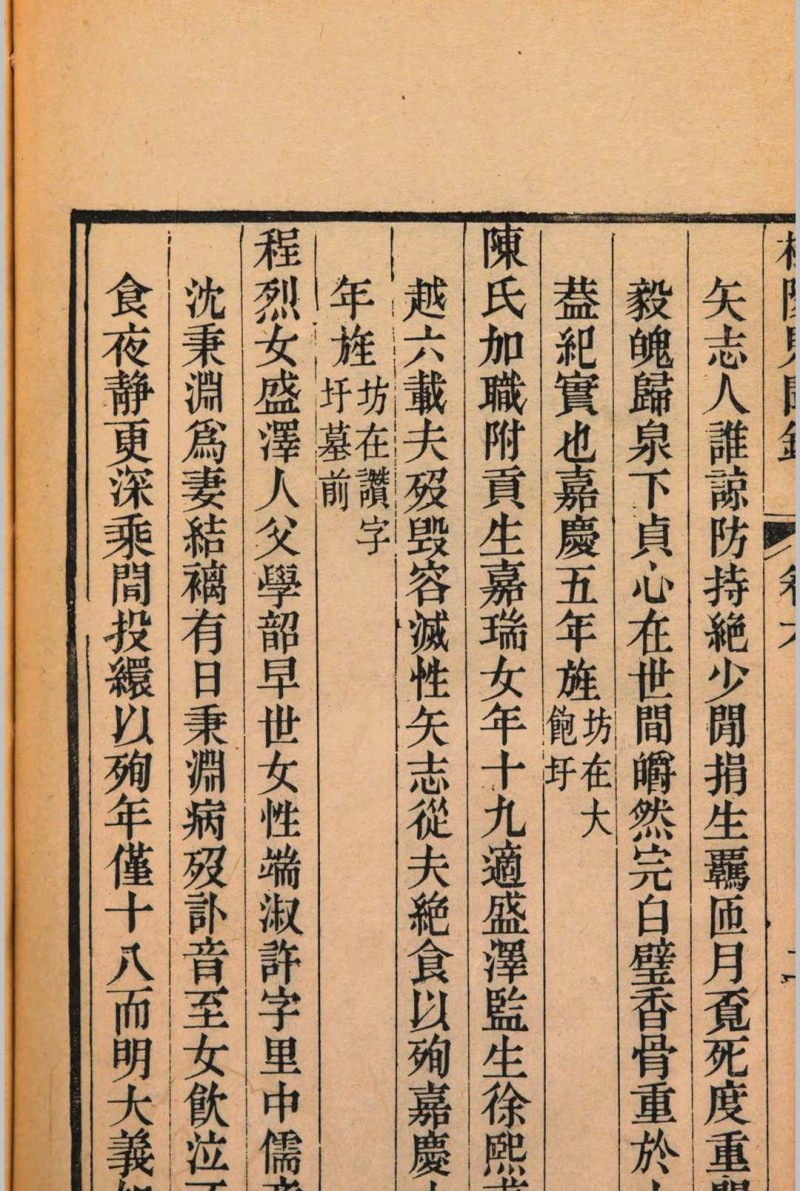 卷六
矢志人誰諒防持絶少閒捐生覊匝月覔死度重
毅魄歸泉下貞心在世間皭然完白璧香骨重於
葢紀實也嘉慶五年旌坊在大
飽圩
陳氏加職附貢生嘉瑞女年十九適盛澤監生徐熙
越六載夫歿毁容滅性矢志從夫絶食以殉嘉慶
年旌坊在讚字
圩墓前
程烈女盛澤人父學韶早世女性端淑許字里中儒
沈秉淵爲妻結褵有日秉淵病歿訃音至女飮泣
食夜靜更深乘間投繯以殉年僅十八而明大義